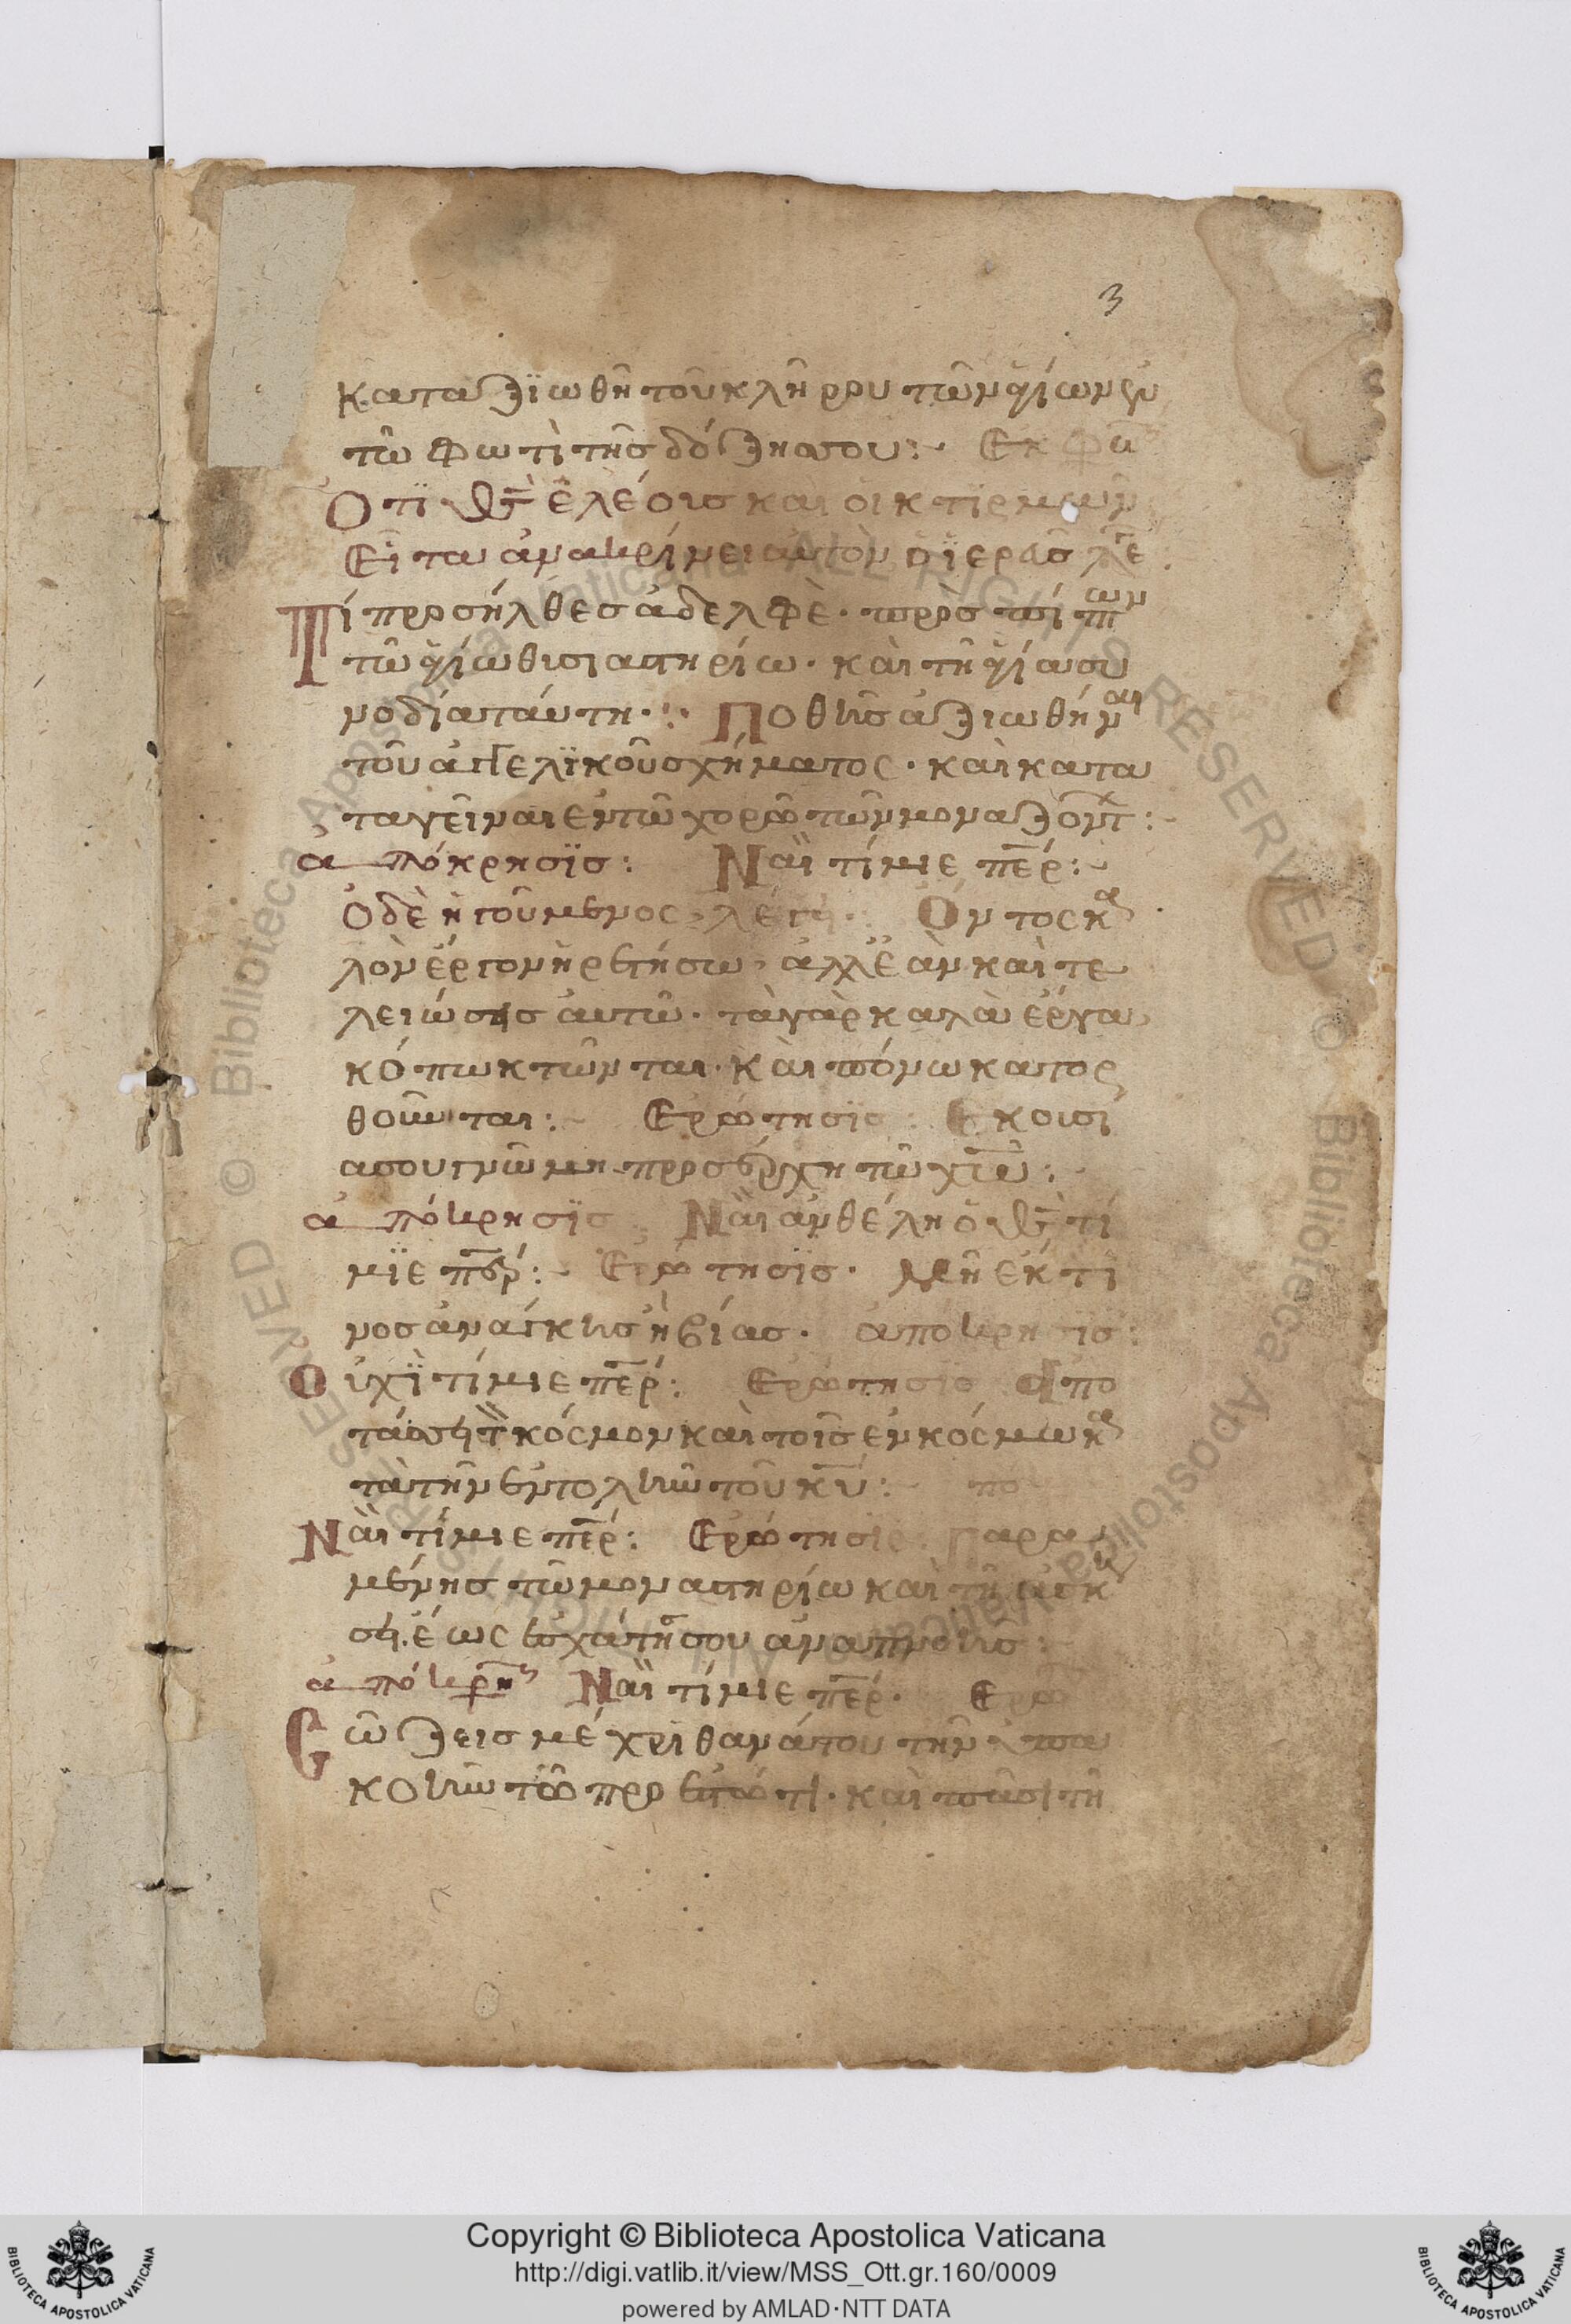 3
καταξϊωθῆ τοῦ κλῆρου τῶν ἁγίων ἐν
τῶ φωτὶ τῆς δόξης σου: Εκφω
Ὅτϊ Θς ἐλέους καὶ οἰκτϊρμων
Εἶτα ἀνακρίνει αὐτὸν ὁ ϊερεὺς λε
Τί προσῆλθες ἀδελφὲ· προσπίπτων
τῶ ἁγίω θυσιαστηρίω· καὶ τῆ ἁγία συ
νοδία ταύτη·:· Ποθεῖς ἀξιωθῆναι
τοῦ ἀγγελϊκοῦ σχήματος· καὶ κατα
ταγεῖναι ἐν τῶ χορῶ τῶν μοναζόντ:
ἀπόκρησϊς: Ναὶ τίμιε περ:
Ὁ δὲ ἡγούμενος λέγει Ὄντος κα
λὸν ἔργον ἠρετήσω· ἀλλ' ἐὰν καὶ τε
λειώσης αὐτῶ· τὰ γὰρ καλὰ ἔργα
κόπω κτῶνται· καὶ πόνω κατορ
θοῦνται: Ερώτησϊς: Εκουσί
α σου γνώμη προσέρχη τῶ χω:
ἀπόκρησϊς: Ναὶ ἀν θέλη ὁ Θς τί
μϊε περ: Ερώτησϊς· Μὴ ἔκ τι
νος ἀνάγκης ἢ βίας· ἀπόκρησϊς:
Οὐχὶ τίμιε περ: Ερώτησϊς Ἀπο
τάσση τ κόσμον καὶ τοῖς ἐν κόσμω κα
τὰ τὴν ἐντολὴν τοῦ κυ: πο
Ναὶ τίμιε περ: Ερώτησϊς Παρα
μένης τῶ μοναστηρίω καὶ τῆ ἀσκή
σει ἕως ἐσχάτης σου ἀναπνοῆς:
ἀπόκρη Ναὶ τίμιε περ· Ερω
Σώζεις μέχρι θανάτου τὴν ὑπα
κοὴν τῶ προεστῶτι· καὶ πάση τῆ
Copyright © Biblioteca Apostolica Vaticana
http://digi.vatlib.it/view/MSS_Ott.gr.160/0009
powered by AMLAD·NTT DATA